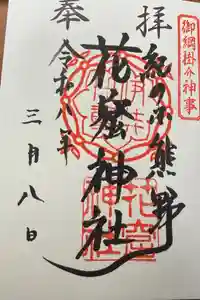 御綱掛け神事
奉拝
紀の国熊野
花窟神社
花窟
神社
令和八年
三月八日